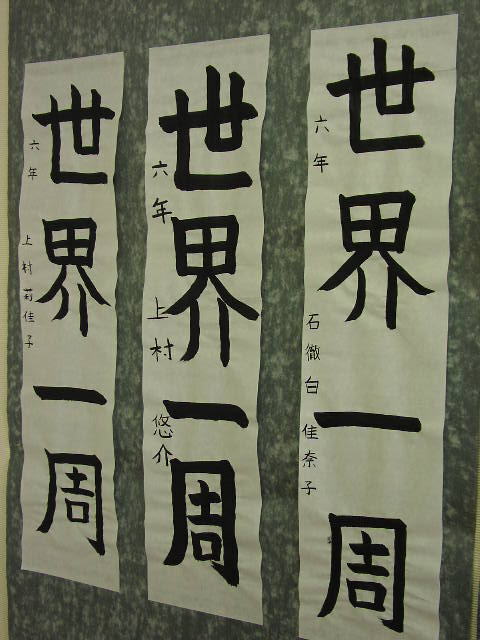 世界一周
六年 石徹白 佳奈子
世界一周
六年 上村 悠介
世界一周
六年 上村 菊佳子